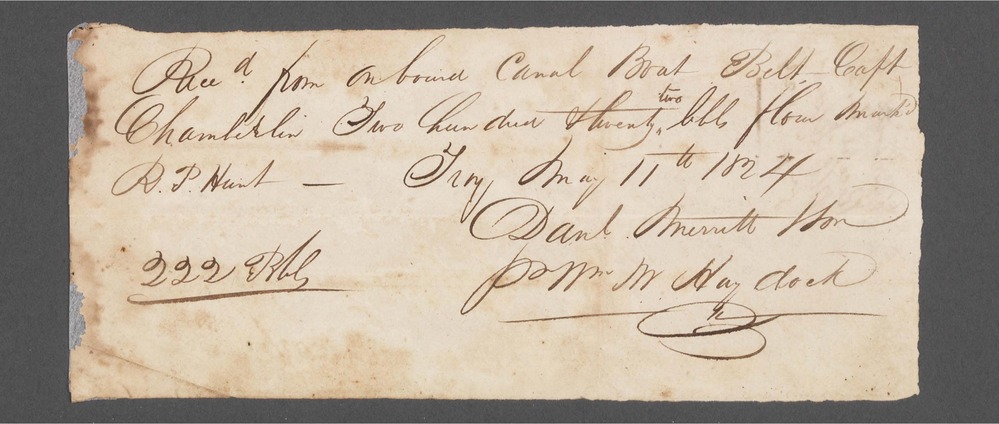 Recd. from on board Canal Boat Belt Capt
Chamberlin Two hundred & twenty two bbls flour mark'd
R. P. Hunt — Troy May 11th 1824
Danl. Merritt & Son
222 Bbls
pr Wm W. Haydock